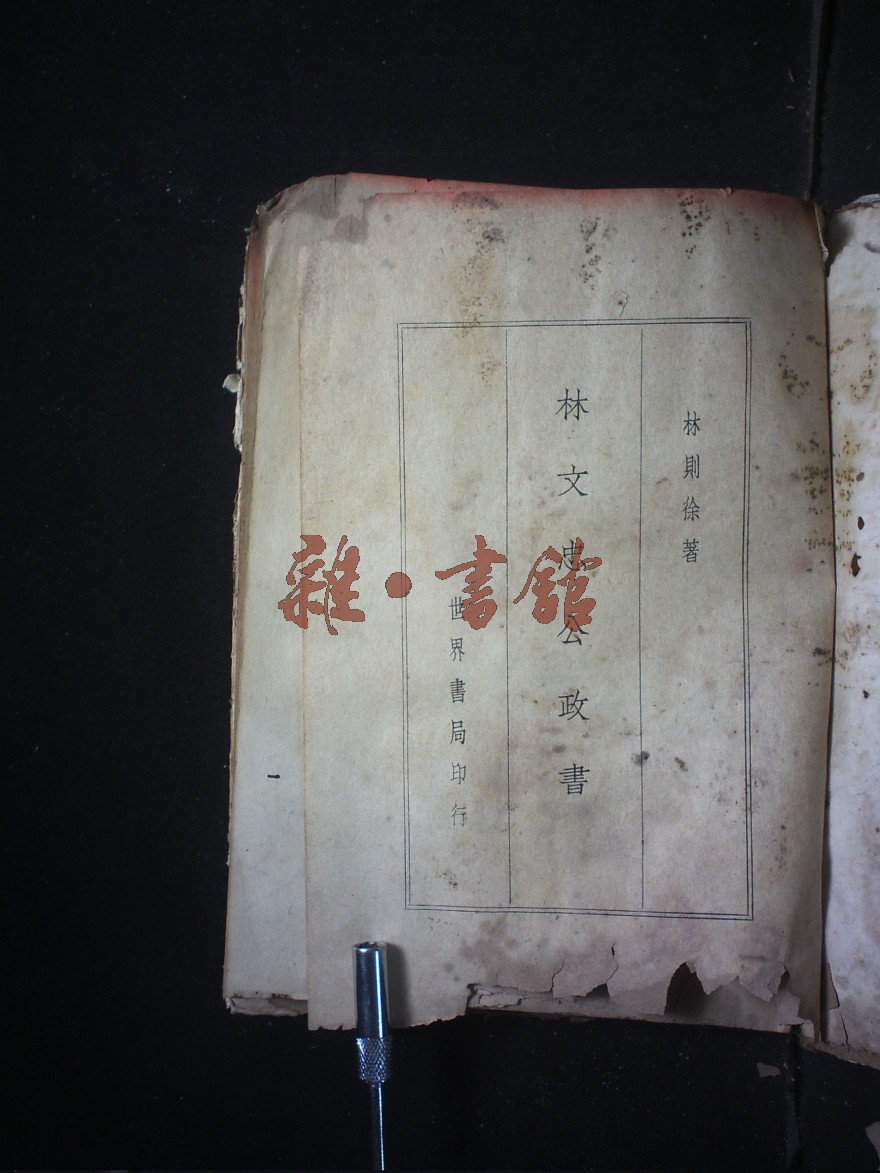 林則徐著
林文忠公政書
世界書局印行
一
雜·書館